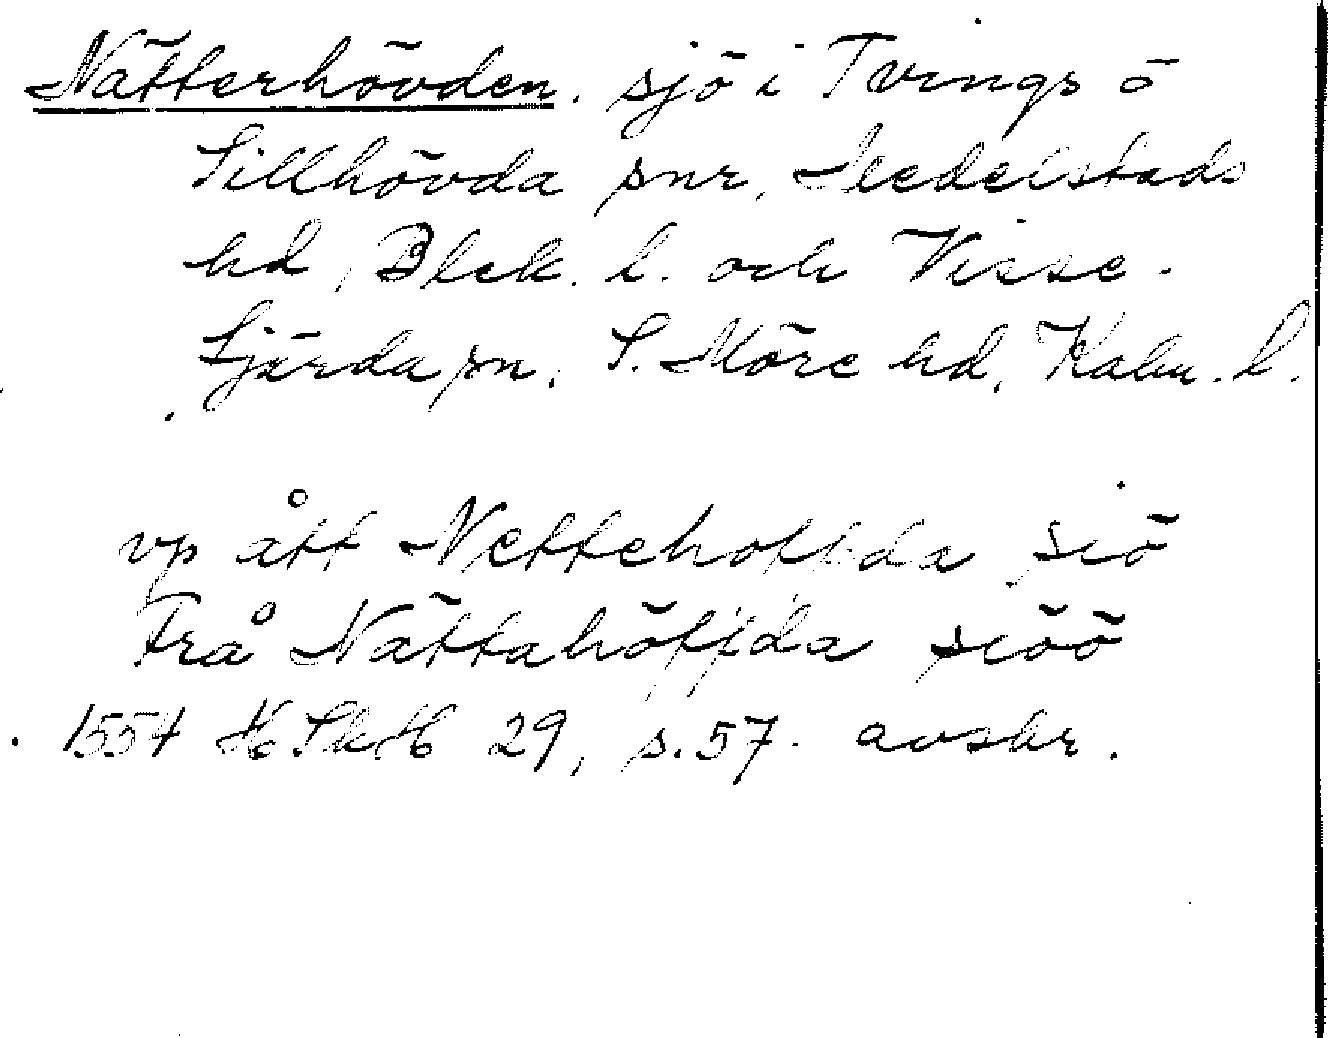 Nätterhövden. sjö i Tvings o
Sillhövda snr, Medelstads
hd, Blek. l. och Visse-
fjärda sn, S. Möre hd, Kalm. l.
vp ått Nettehoffda siö
Frå Nättahöffda siöö
1554 HSkH 29, s. 57. avskr.